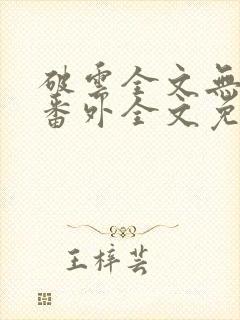 破雲全文無
番外全文免
王梓芸